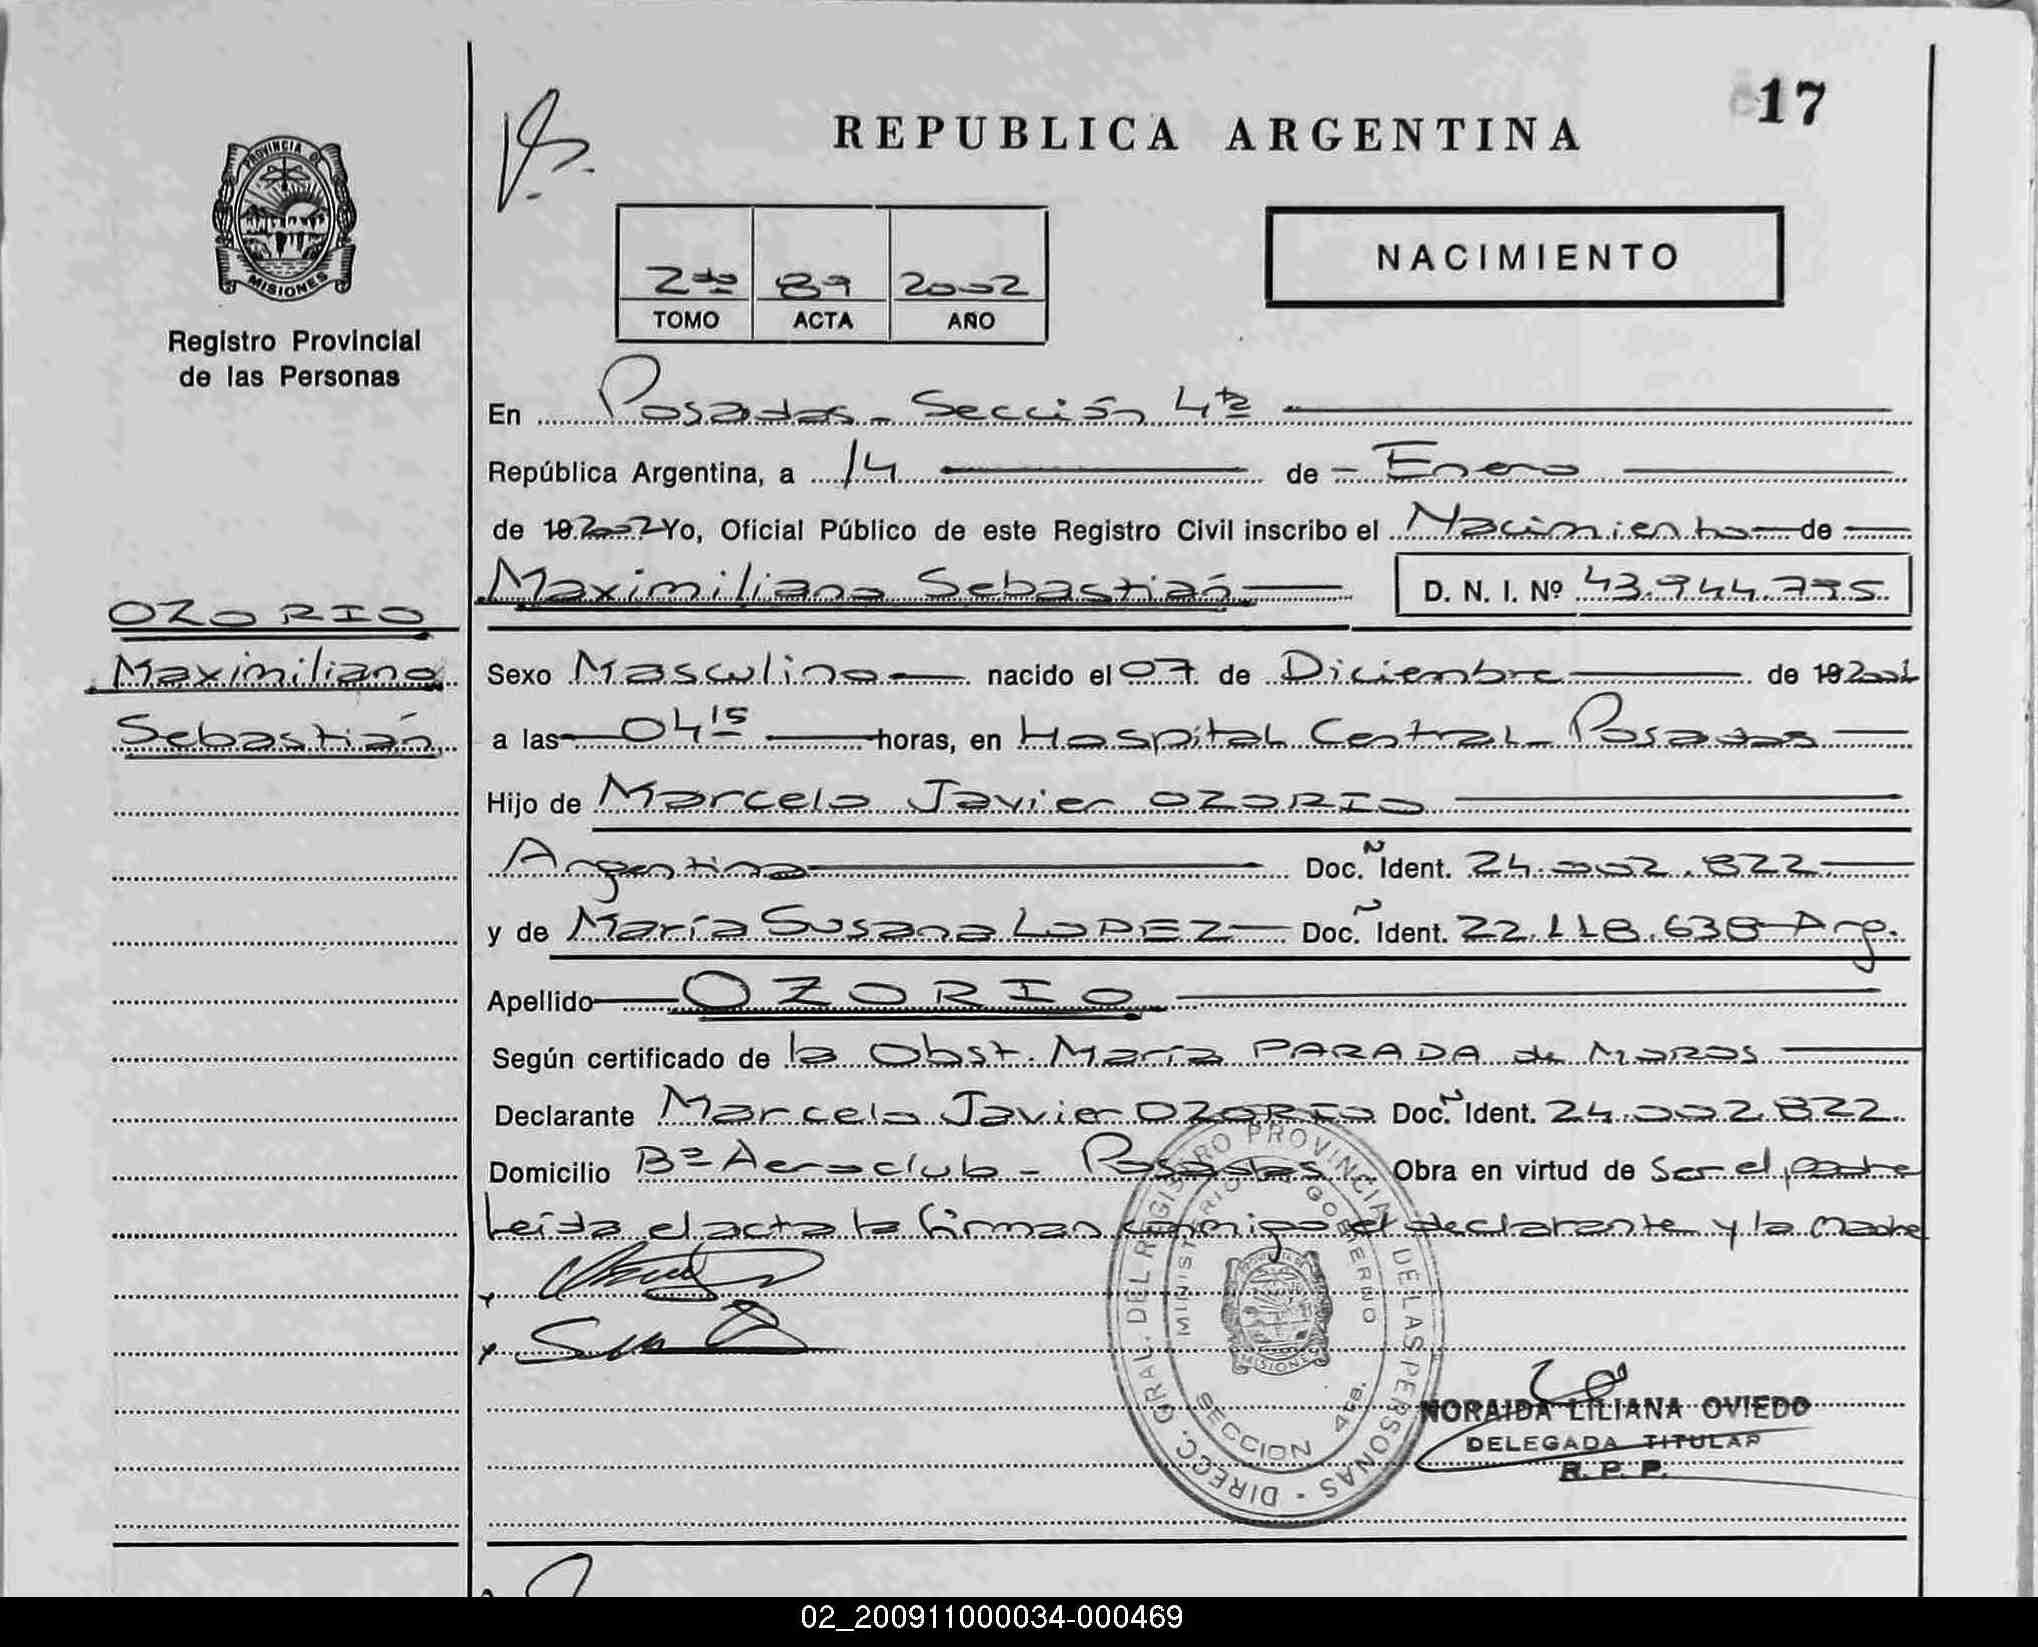 17
REPUBLICA ARGENTINA
PROVINCIA DE
MISIONES
Registro Provincial
de las Personas
NACIMIENTO
2do 89 2002
TOMO ACTA AÑO
En Posadas - Sección 4ta
República Argentina, a 14 de Enero
de 19 2002 Yo, Oficial Público de este Registro Civil inscribo el Nacimiento de
Maximiliano Sebastián D. N. I. Nº 43.944.795
OZORIO
Maximiliano
Sebastián
Sexo Masculino nacido el 07 de Diciembre de 19 2001
a las 04 15 horas, en Hospital Central - Posadas
Hijo de Marcelo Javier OZORIO
Argentino Doc. Ident. 24.002.822
y de María Susana LOPEZ Doc. Ident. 22.118.638 - Arg.
Apellido OZORIO
Según certificado de la Obst. María PARADA de MORAS
Declarante Marcelo Javier OZORIO Doc. Ident. 24.002.822
Domicilio Bº Aeroclub - Posadas Obra en virtud de Ser el padre
Leída el acta la firman conmigo el declarante y la Madre
DIRECC. GRAL. DEL REGISTRO PROVINCIAL DE LAS PERSONAS
MINISTERIO DE GOBIERNO
MISIONES
SECCION 4ta.
NORAIDA LILIANA OVIEDO
DELEGADA TITULAR
R. P. P.
02_200911000034-000469